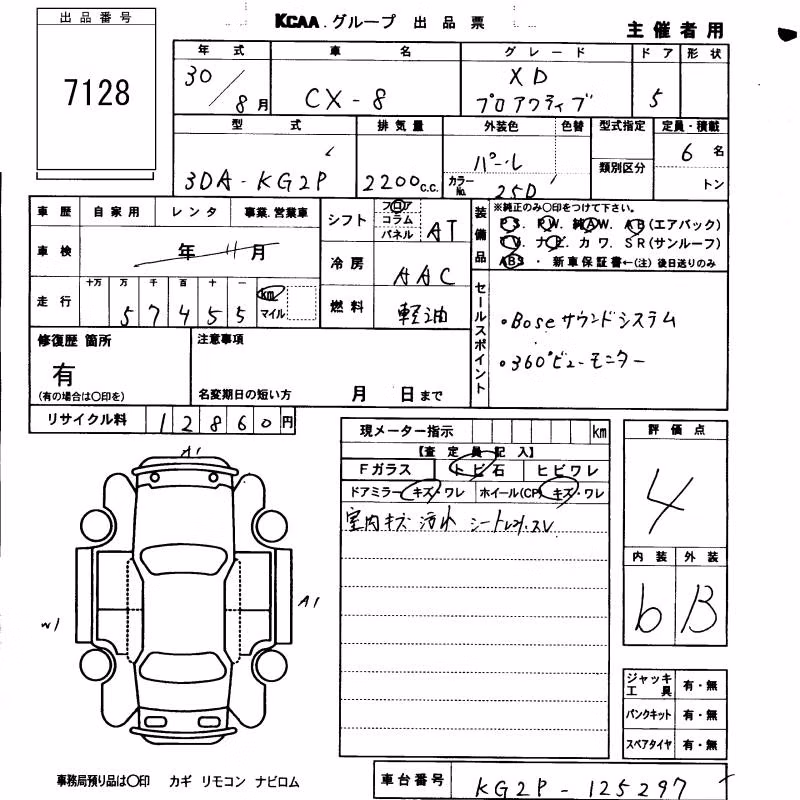 出品番号
7128
KCAA.グループ 出品票
主催者用
年式 車名 グレード ドア 形状
30/8月 CX-8 XD プロアクティブ 5
型式 排気量 外装色 色替 型式指定 定員・積載
3DA-KG2P 2200c.c. パール 類別区分 6名
カラーNo. 25D トン
車歴 自家用 レンタ 事業.営業車
シフト フロア コラム パネル AT
装備品 ※純正のみ〇印をつけて下さい。
PS. PW. 純AW. AB(エアバック)
TV. ナビ. カワ. SR(サンルーフ)
ABS・新車保証書←(注)後日送りのみ
車検 年 11月
冷房 AAC
走行 十万 万 千 百 十 一
57455 km マイル
燃料 軽油
セールスポイント
・Boseサウンドシステム
・360°ビューモニター
修復歴 箇所 注意事項
有
(有の場合は〇印を) 名変期日の短い方 月 日まで
リサイクル料 12860円
現メーター指示 km
【査定員記入】
Fガラス トビ石 ヒビワレ
ドアミラー キズ・ワレ ホイール(CP) キズ・ワレ
室内キズ 汚れ シートレザースレ
評価点
4
内装 外装
b B
A1
W1
A1
ジャッキ工具 有・無
パンクキット 有・無
スペアタイヤ 有・無
事務局預り品は〇印 カギ リモコン ナビロム
車台番号 KG2P-125297